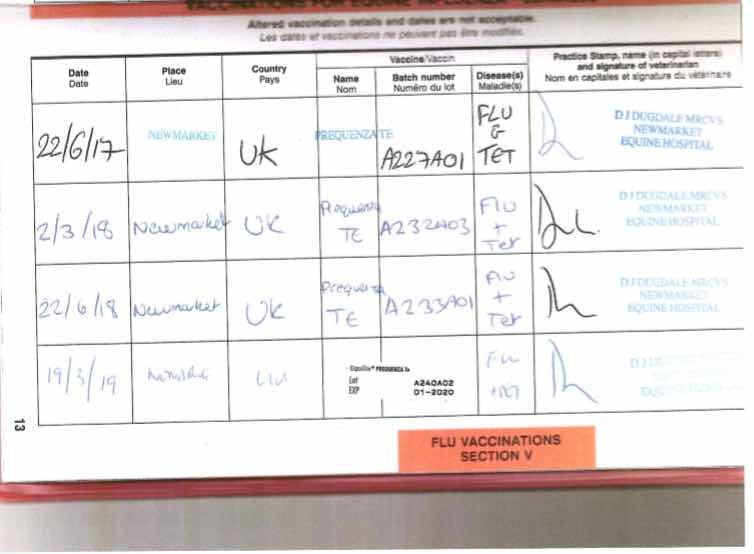 VACCINATIONS FOR EQUINE
Altered vaccination details and dates are not acceptable.
Les dates et vaccinations ne peuvent pas être modifiés.
Date
Date
Place
Lieu
Country
Pays
Vaccine/Vaccin
Name
Nom
Batch number
Numéro du lot
Disease(s)
Maladie(s)
Practice Stamp, name (in capital letters)
and signature of veterinarian
Nom en capitales et signature du vétérinaire
22/6/17
NEWMARKET
UK
PREQUENZA TE
A227A01
FLU
&
TET
D J DUGDALE MRCVS
NEWMARKET
EQUINE HOSPITAL
2/3/18
Newmarket
UK
Prequenza
TE
A232A03
FLU
+
Tet
D J DUGDALE MRCVS
NEWMARKET
EQUINE HOSPITAL
22/6/18
Newmarket
UK
Prequenza
TE
A233A01
FLU
+
Tet
D J DUGDALE MRCVS
NEWMARKET
EQUINE HOSPITAL
19/3/19
Equilis® PREQUENZA Te
Lot A240A02
EXP 01-2020
13
FLU VACCINATIONS
SECTION V